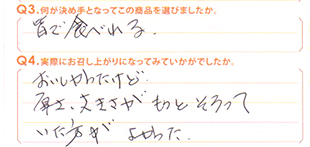 Q3.何が決め手となってこの商品を選びましたか。
皆で食べれる.
Q4.実際にお召し上がりになってみていかがでしたか。
おいしかったけど.
厚さ、大きさがもっとそろって
いた方がよかった.